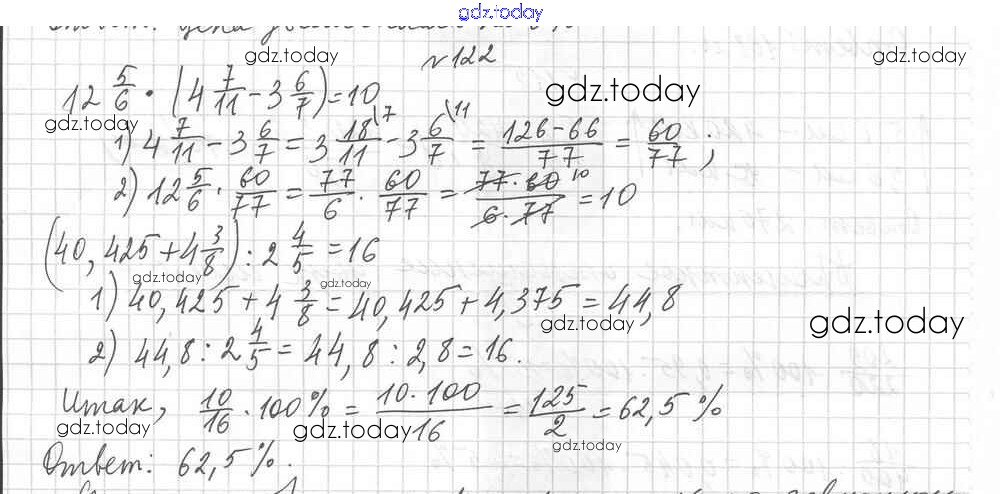 gdz.today
№122
gdz.today gdz.today
12 5/6 · (4 7/11 - 3 6/7) = 10
gdz.today
gdz.today
1) 4 7/11 - 3 6/7 = 3 18/11 \7 - 3 6/7 \11 = 126-66/77 = 60/77 ;
2) 12 5/6 · 60/77 = 77/6 · 60/77 = 77·60/6·77 10 = 10
(40,425 + 4 3/8) : 2 4/5 = 16
gdz.today gdz.today
1) 40,425 + 4 3/8 = 40,425 + 4,375 = 44,8
gdz.today gdz.today
2) 44,8 : 2 4/5 = 44,8 : 2,8 = 16.
Итак, 10/16 · 100% = 10·100/16 = 125/2 = 62,5 %
gdz.today gdz.today gdz.today
Ответ: 62,5 %.